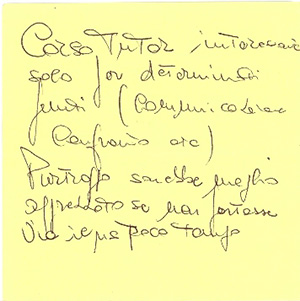 Corso Tutor interessante
solo per determinati
fondi (Comunicazione
Confronto ecc)
Purtroppo sarebbe meglio
se non portasse
Via poco tempo